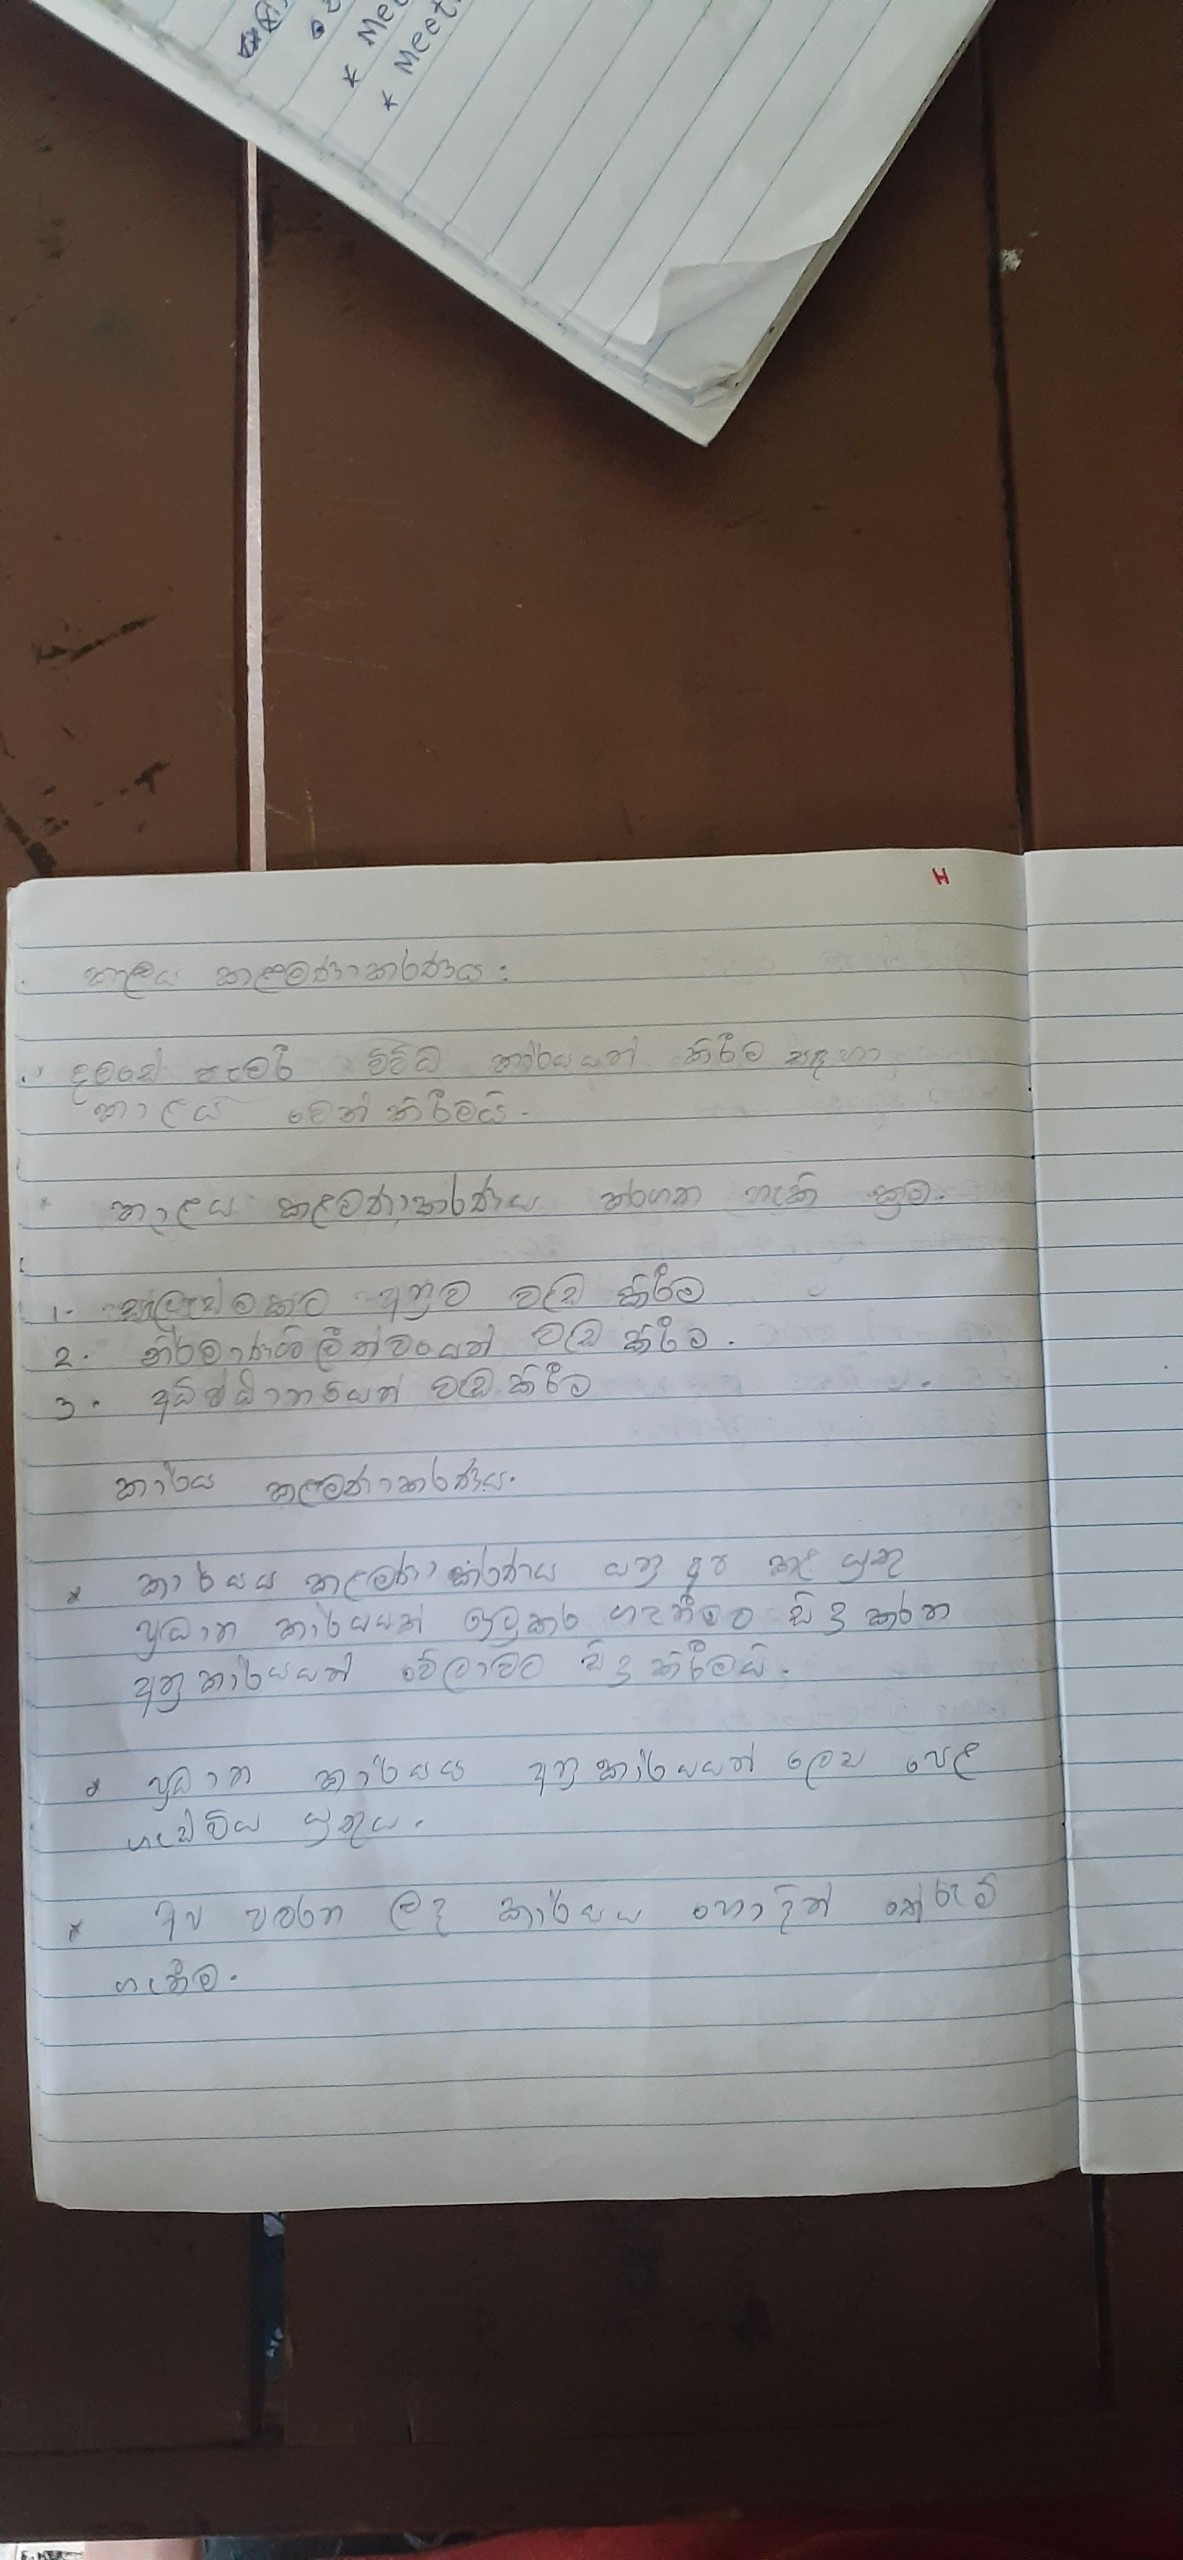 * Mee
* Meet
H
කාළය කළමණාකරණය.
විවිධ කාර්යයන් කිරීම සඳහා
කාලය වෙන් කිරීමයි.
* කාළය කළමණාකරණය කරගත හැකි ක්‍රම.
1. සැලැස්මකට අනුව වැඩ කිරීම
2. නිර්මාණශීලීත්වයෙන් වැඩ කිරීම.
3. අධිෂ්ඨානයෙන් වැඩ කිරීම
කාර්ය කළමණාකරණය.
* කාර්යය කළමණාකරණය යනු අප කළ යුතු
ප්‍රධාන කාර්යයන් ඉටුකර ගැනීමට සිදු කරන
අනු කාර්යයන් වේලාවට සිදු කිරීමයි.
* ප්‍රධාන කාර්යය අනු කාර්යයන් ලෙස පෙළ
ගැස්විය යුතුය.
* අප පවරන ලද කාර්යය හොදින් තේරුම්
ගැනීම.